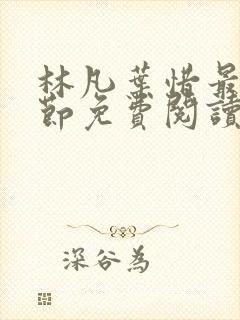 林凡葉惜最
節免費閱讀
深谷為